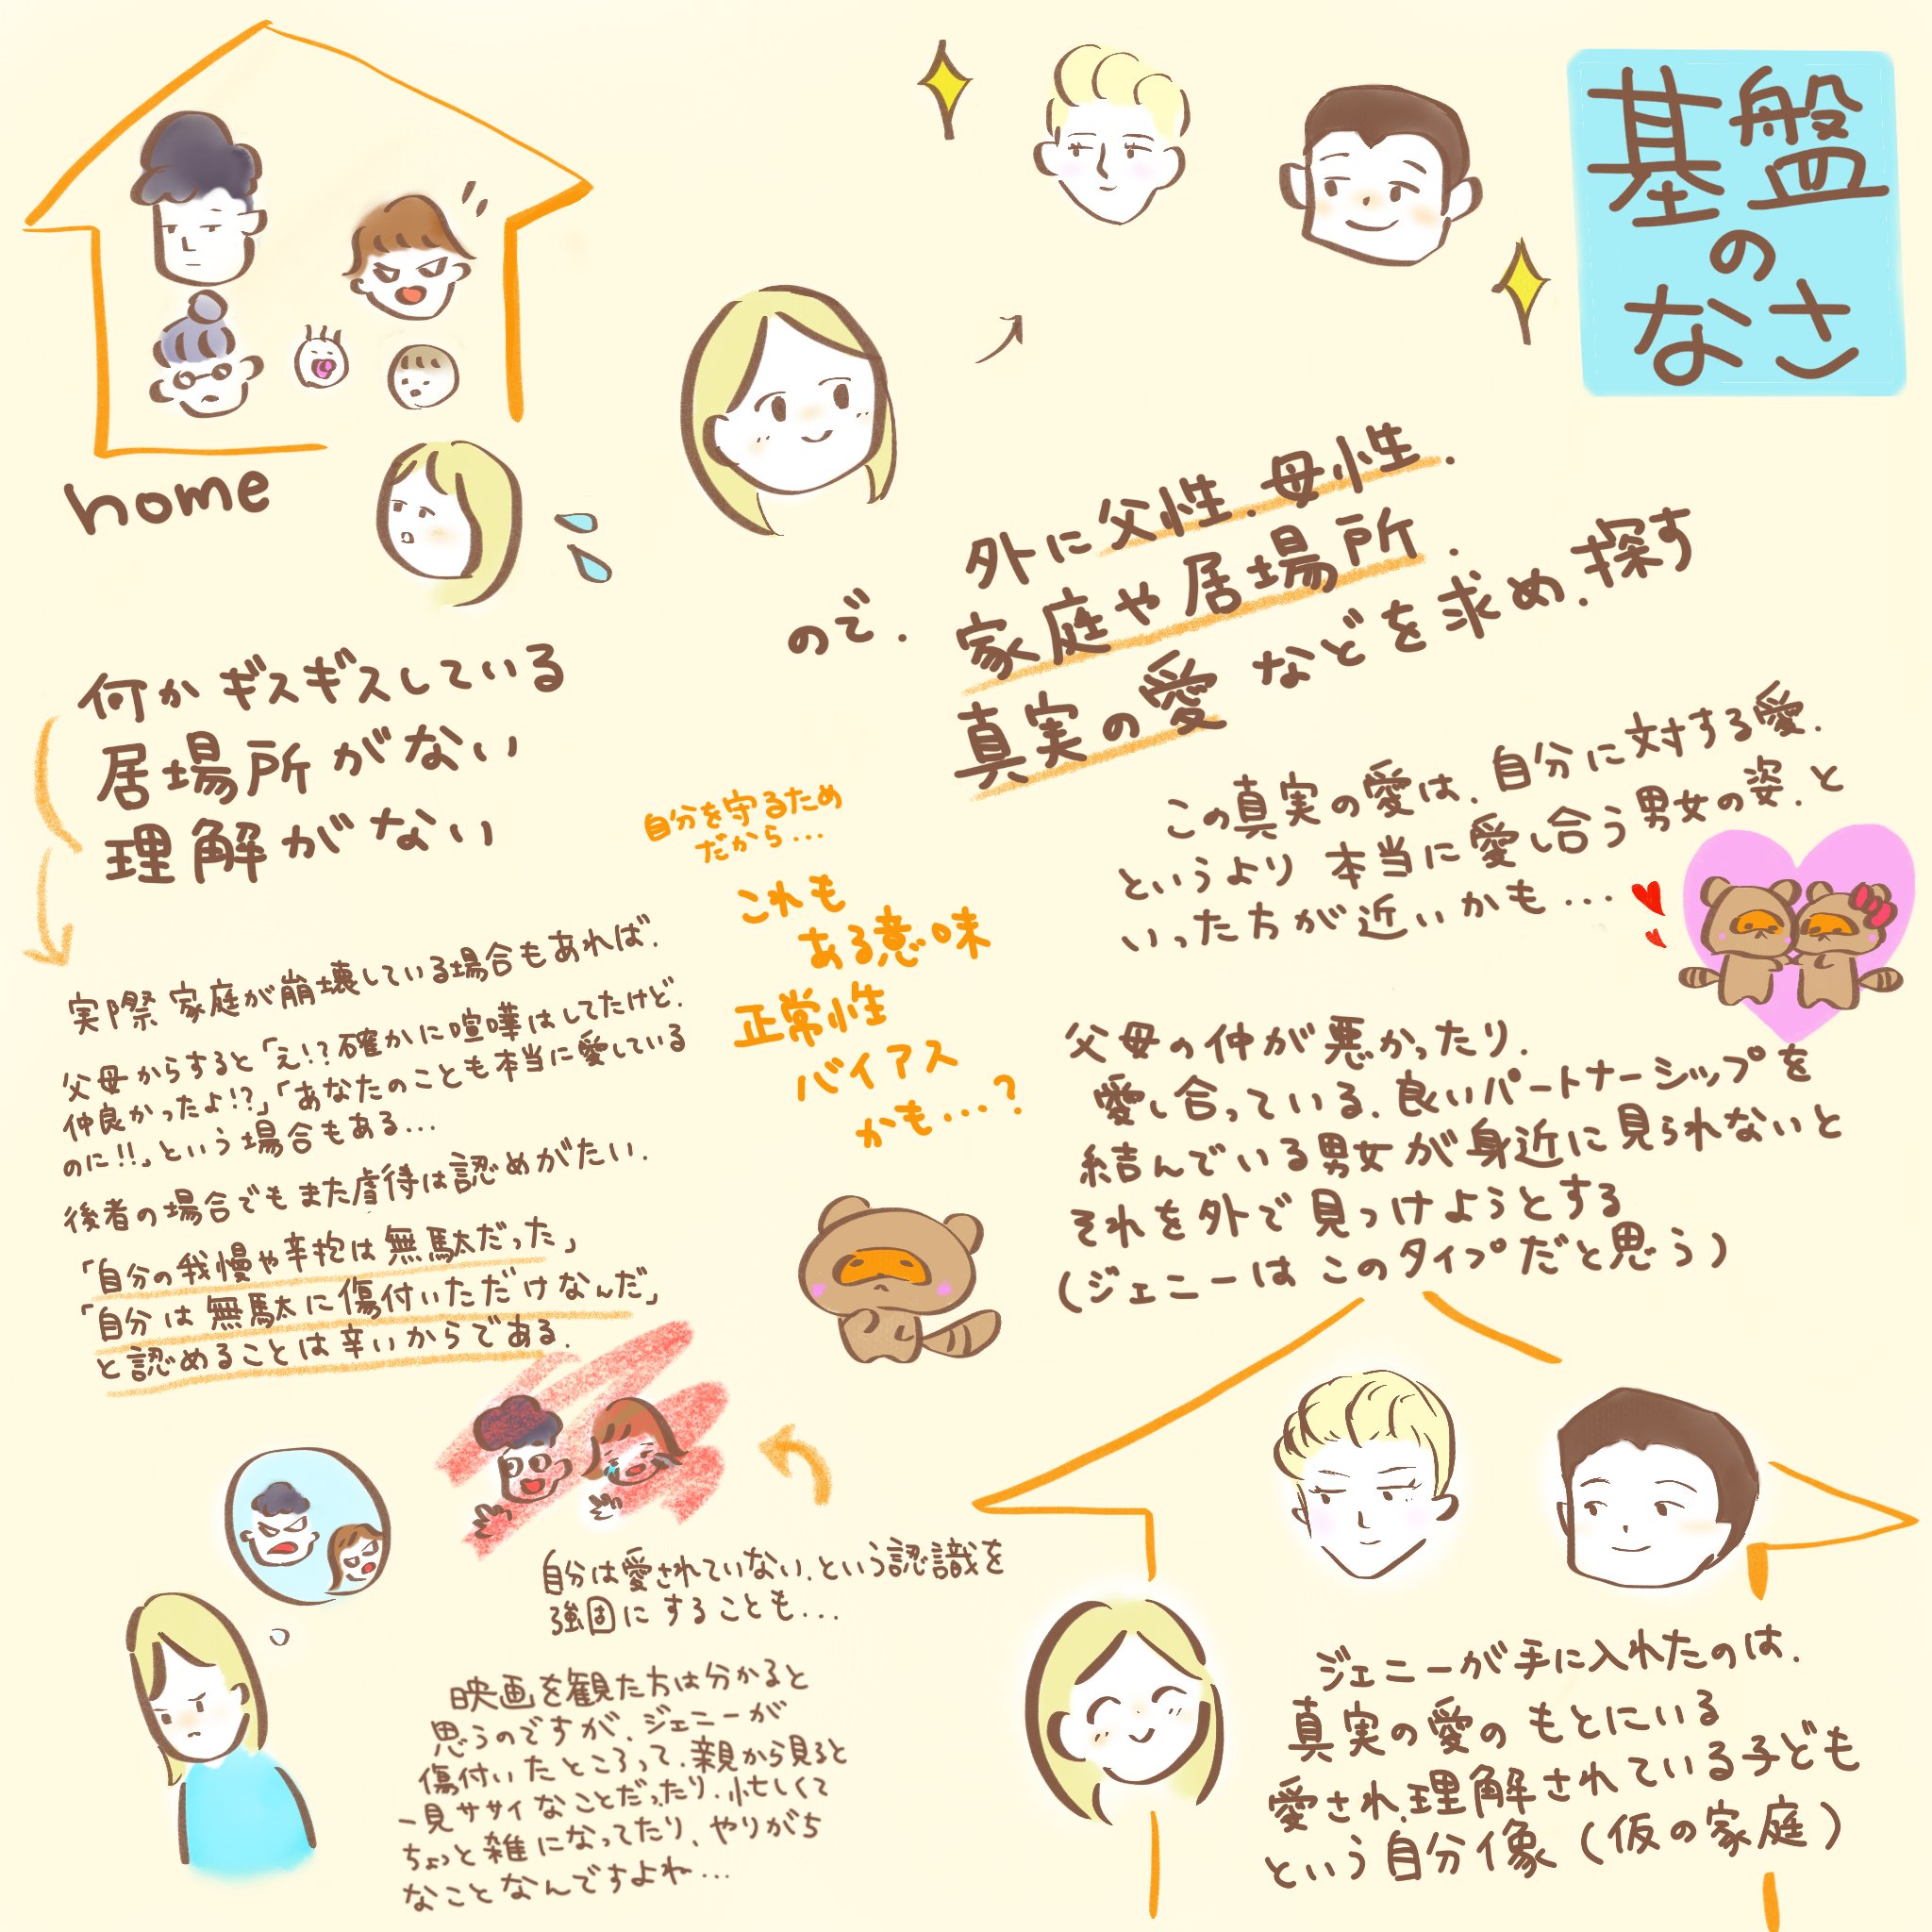 基盤
の
なさ
home
何かギスギスしている
居場所がない
理解がない
ので、
外に父性、母性、
家庭や居場所、
真実の愛などを求め、探す
この真実の愛は、自分に対する愛、
というより本当に愛し合う男女の姿、と
いった方が近いかも…
実際家庭が崩壊している場合もあれば、
父母からすると「え!?確かに喧嘩はしてたけど、
仲良かったよ!?」「あなたのことも本当に愛している
のに!!」という場合もある…
後者の場合でもまた虐待は認めがたい。
「自分の我慢や辛抱は無駄だった」
「自分は無駄に傷付いただけなんだ」
と認めることは辛いからである。
自分を守るため
だから…
これも
ある意味
正常性
バイアス
かも…?
父母の仲が悪かったり、
愛し合っている、良いパートナーシップを
結んでいる男女が身近に見られないと
それを外で見つけようとする
(ジェニーはこのタイプだと思う)
自分は愛されていない、という認識を
強固にすることも…
映画を観た方は分かると
思うのですが、ジェニーが
傷付いたところって、親から見ると
一見ササイなことだったり、忙しくて
ちょっと雑になってたり、やりがち
なことなんですよね…
ジェニーが手に入れたのは、
真実の愛のもとにいる
愛され、理解されている子ども
という自分像(仮の家庭)